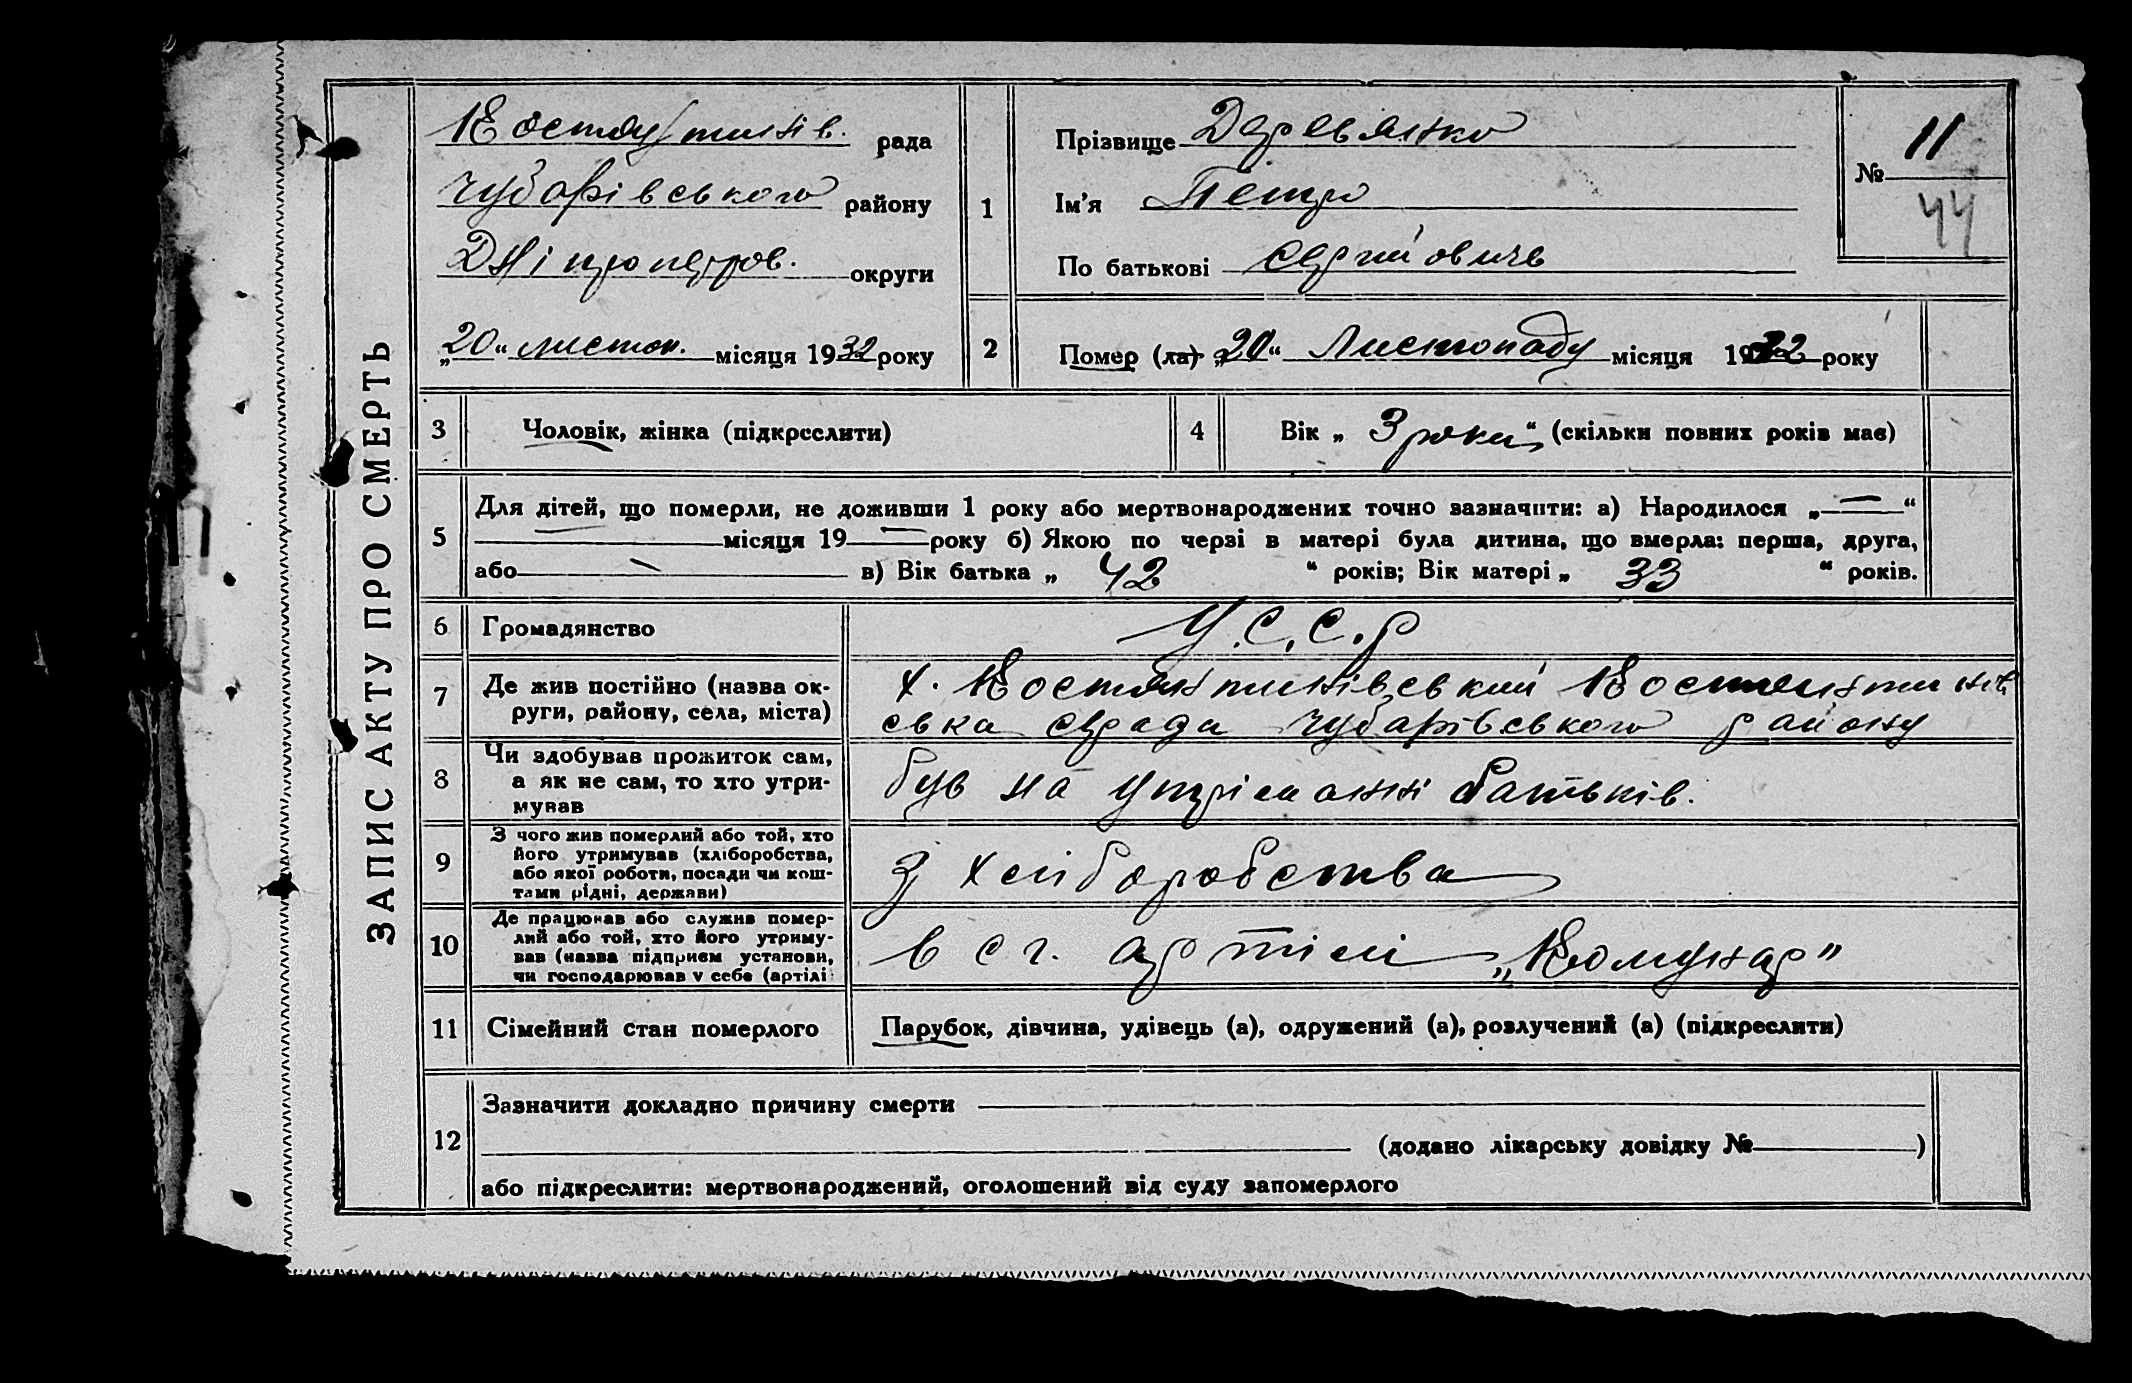 ЗАПИС АКТУ ПРО СМЕРТЬ
Костянтинів. рада
Чубарівського району
Дніпропетров. округи
„20“ листоп. місяця 1932 року
1
Прізвище Деревянко
Ім'я Петро
По батькові Сергійовичь
№ 11
44
2
Помер (ла) „20“ Листопаду місяця 1932 року
3 Чоловік, жінка (підкреслити)
4 Вік „ 3 роки “ (скільки повних років має)
5
Для дітей, що померли, не доживши 1 року або мертвонароджених точно зазначити: а) Народилося „—“
— місяця 19 — року б) Якою по черзі в матері була дитина, що вмерла: перша, друга,
або — в) Вік батька „ 42 “ років; Вік матері „ 33 “ років.
6 Громадянство У.С.С.Р
7 Де жив постійно (назва ок-
руги, району, села, міста)
х. Костянтинівський Костянтинів
ська с/рада Чубарівського району
8 Чи здобував прожиток сам,
а як не сам, то хто утри-
мував
був на утріманні батьків.
9 З чого жив померлий або той, хто
його утримував (хліборобства,
або якої роботи, посади чи кош-
тами рідні, держави)
З хліборобства
10 Де працював або служив помер-
лий або той, хто його утриму-
вав (назва підприєм установи,
чи господарював у себе (артілі
в с г. артілі „Комунар"
11 Сімейний стан померлого Парубок, дівчина, удівець (а), одружений (а), розлучений (а) (підкреслити)
12
Зазначити докладно причину смерти
(додано лікарську довідку № )
або підкреслити: мертвонароджений, оголошений від суду запомерлого